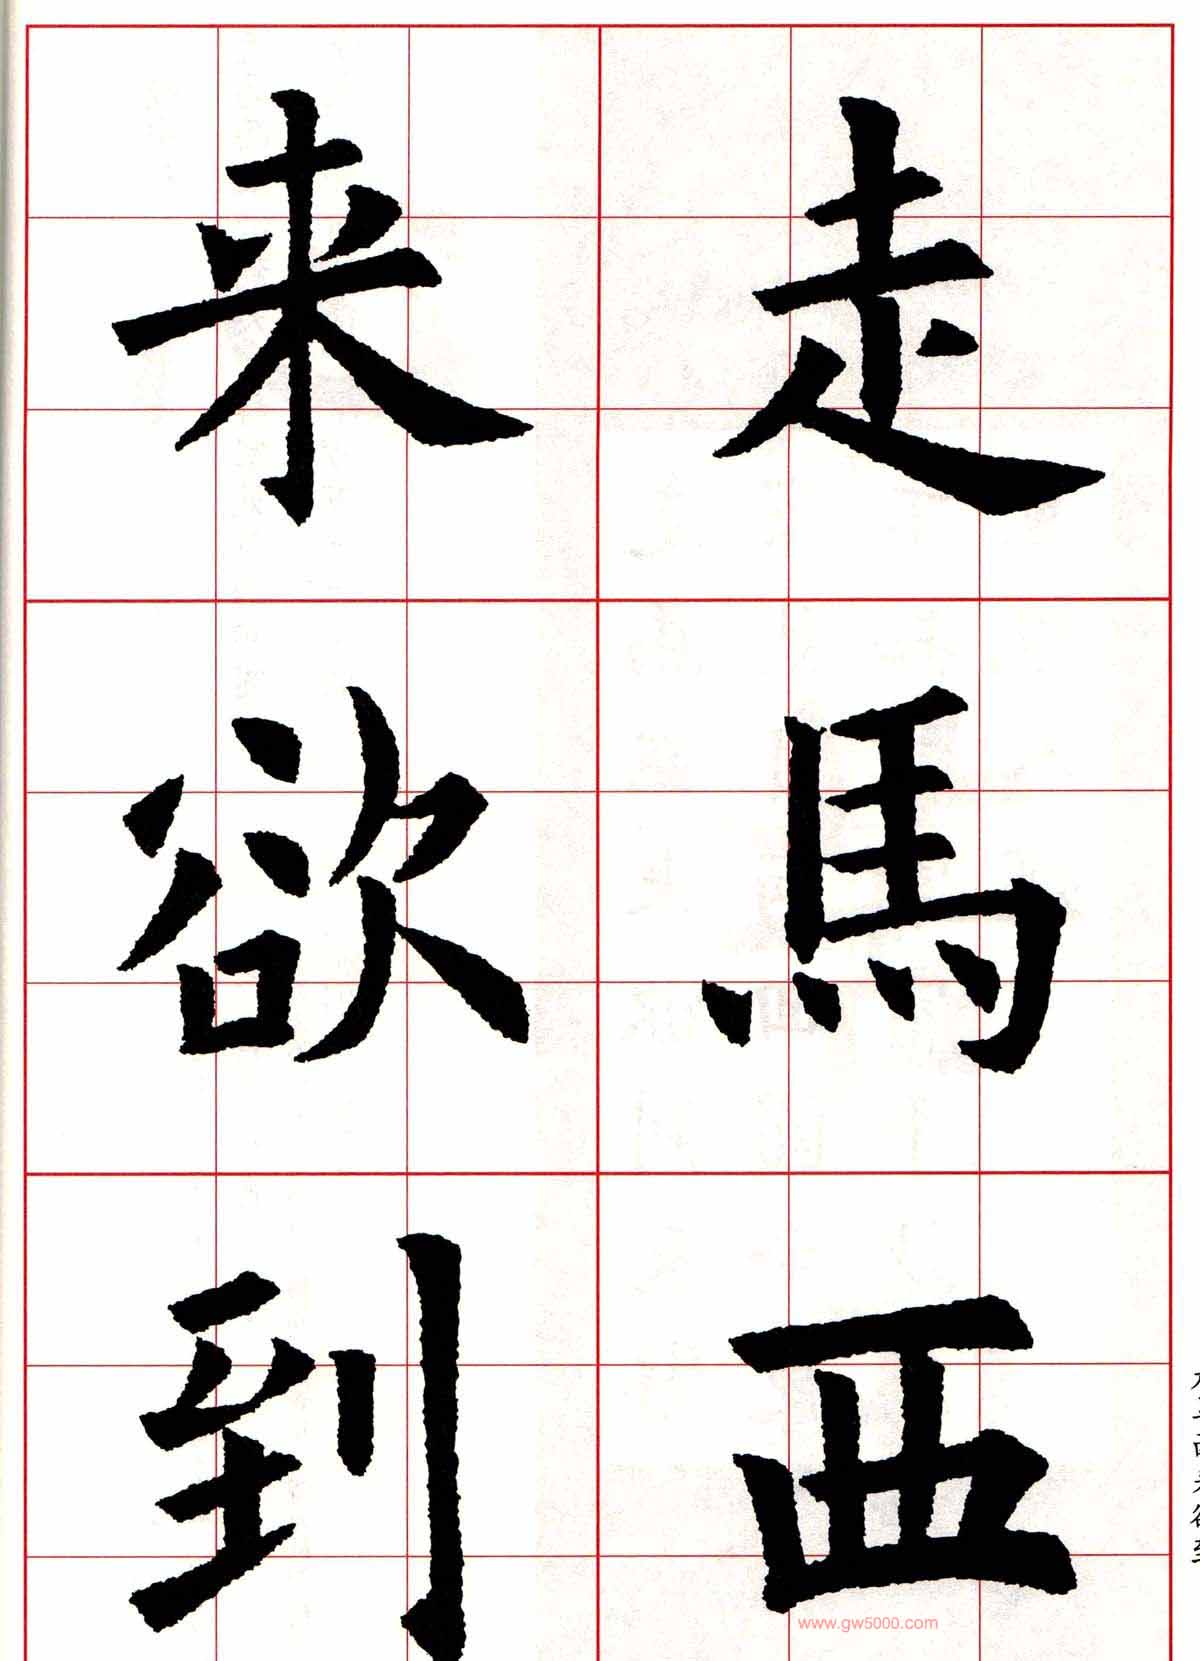 走馬西
来欲到
www.gw5000.com